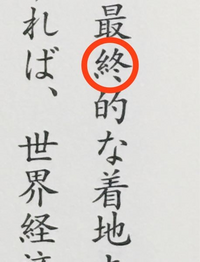 最終的な着地
れば、世界経済